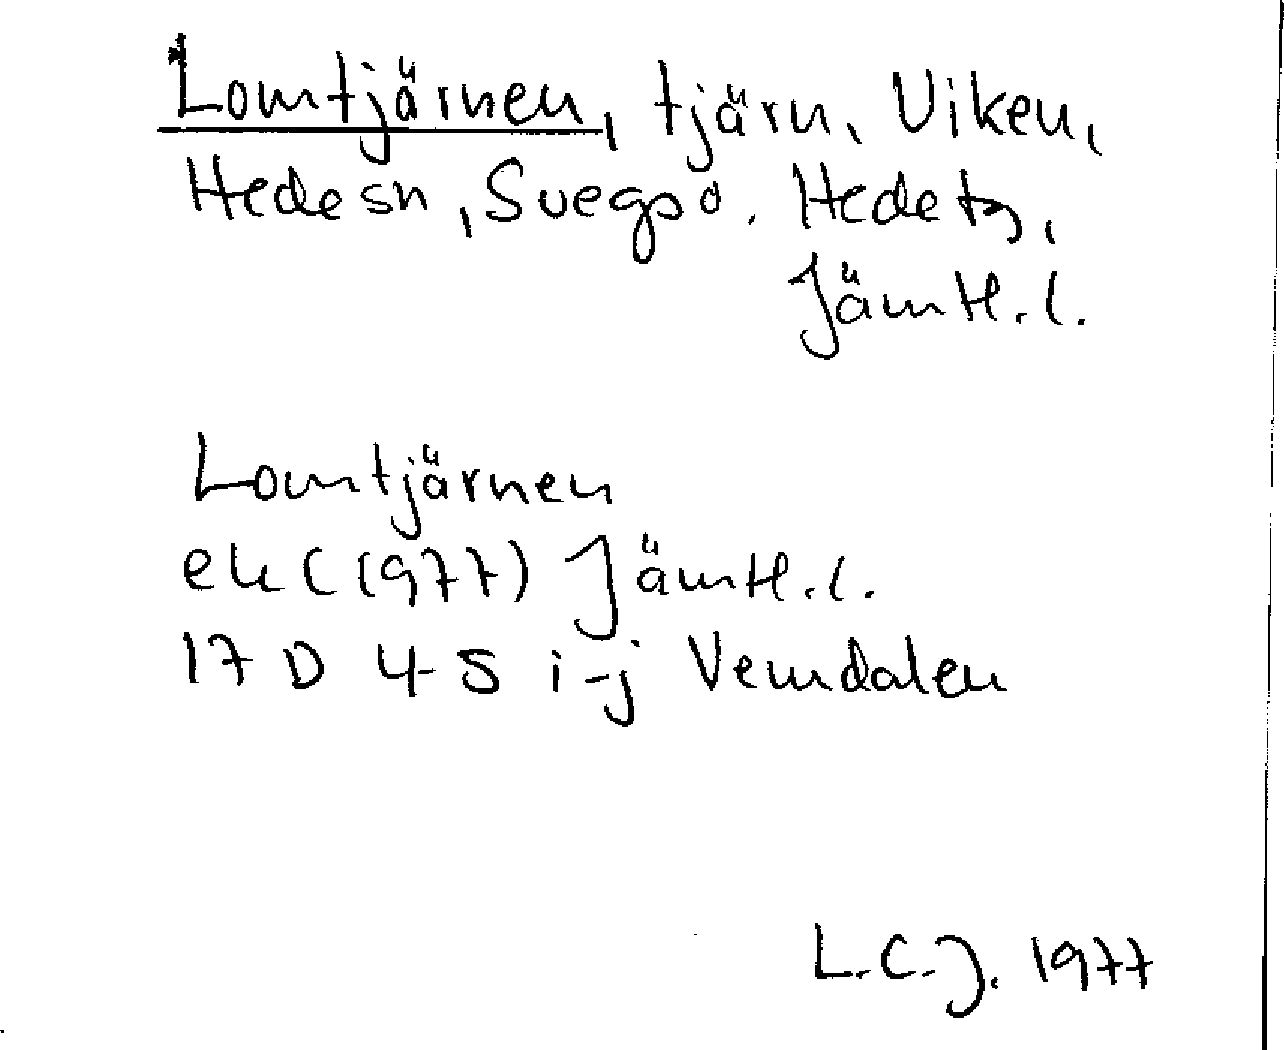 *Lomtjärnen, tjärn, Viken,
Hedesn, Svegsd. Hede tg,
Jämtl.l.
Lomtjärnen
ek (1977) Jämtl.l.
17 D 4-5 i-j Vemdalen
L.C.J. 1977